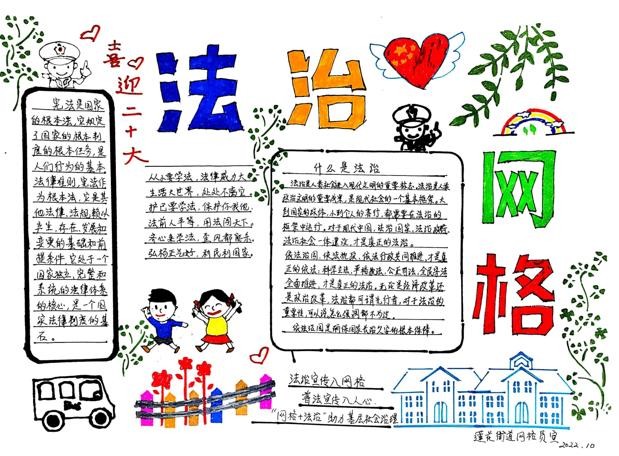 喜迎二十大
法治
网格
宪法是国家
的根本法,它规定
了国家的根本制
度的根本任务,是
人们行为的基本
法律准则,宪法作
为根本法,它是其
他法律、法规赖以
产生、存在、发展和
变更的基础和前
提条件,它处于一个
国家独立、完整和
系统的法律体系
的核心,是一个国
家法律制度的基
石。
从小要学法,法律威力大
生活大世界,处处不离它
护己要学法,保护你我他
法前人平等,用法闯天下。
齐心来学法,
弘扬正气好,利民利国家。
什么是法治
法治是人类社会进入现代文明的重要标志,法治是人类
政治文明的重要成果,是现代社会的一个基本框架。大
到国家的政体,小到个人的言行,都需要在法治的
框架中运行。对于现代中国,法治国家、法治政府、
法治社会一体建设,才是真正的法治。
依法治国、依法执政、依法行政共同推进,才是真
正的依法;科学立法、严格执法、公正司法、全民守法
全面推进,才是真正的法治。无论是经济改革还
是政治改革,法治都可谓先行者,对于法治的
重要性,可以说怎么强调都不为过。
依法治国是确保国家长治久安的根本保障。
法治宣传入网格
普法宣传入人心
“网格+法治”助力基层社会治理
莲花街道网格员宣
2022.10